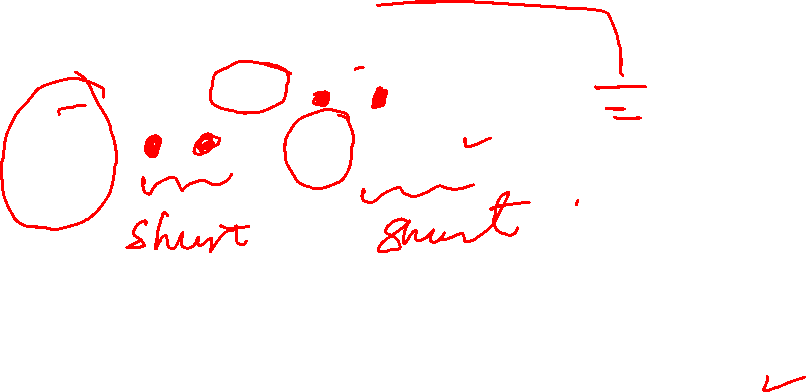 shunt shunt